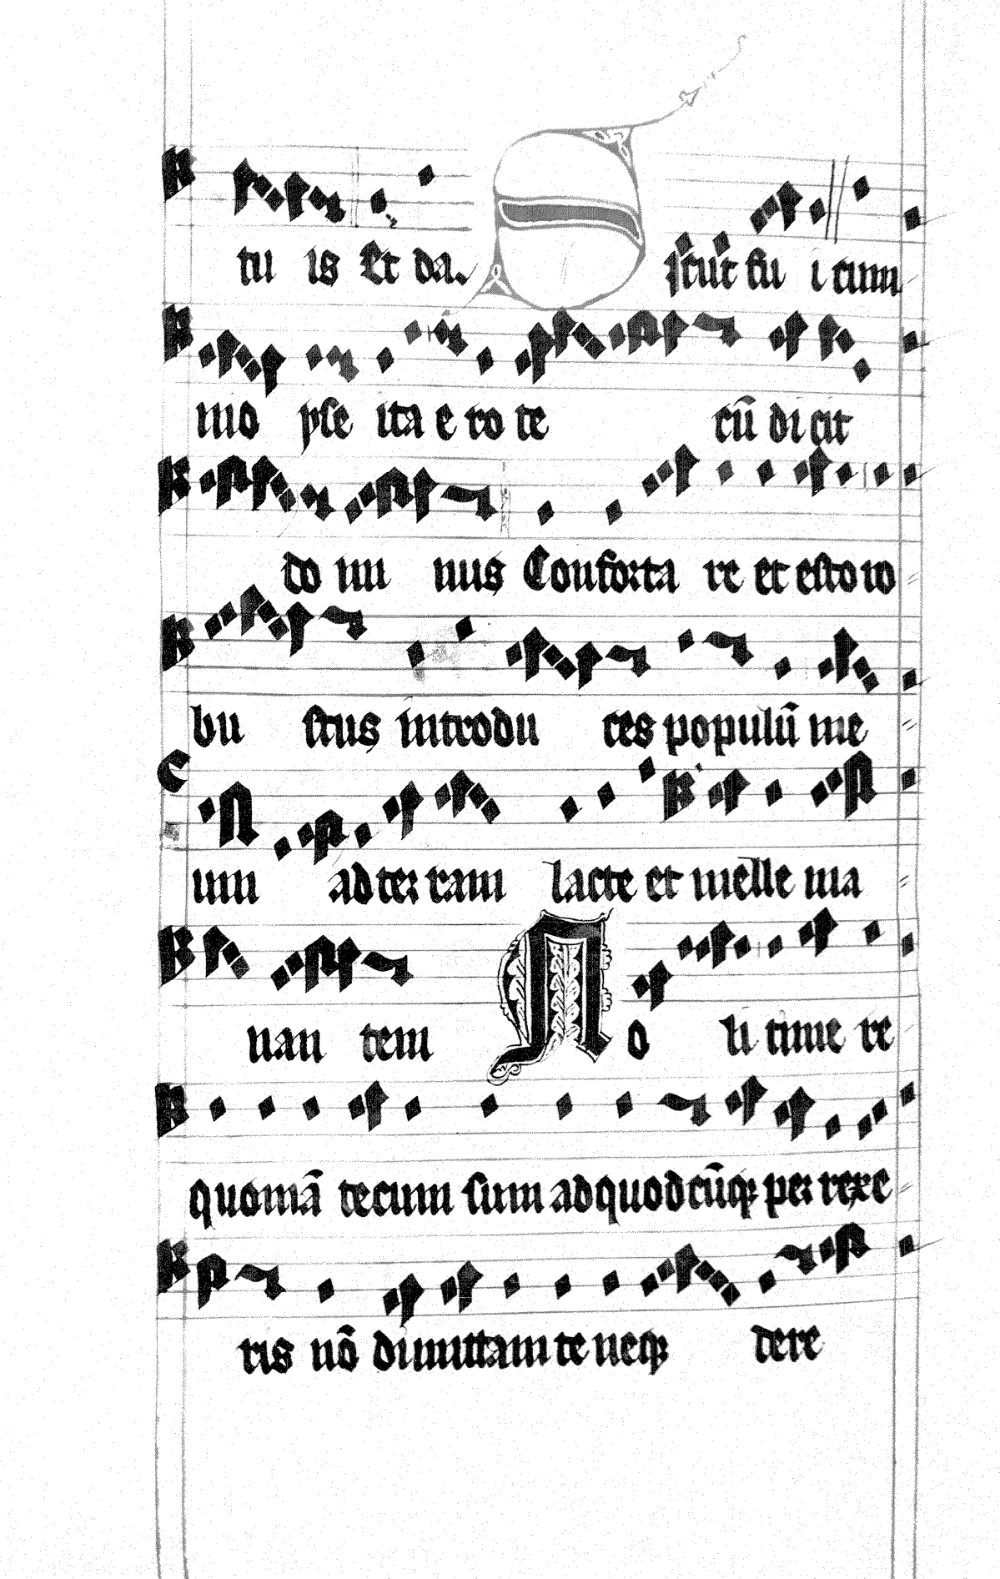 tu is Et da. Sicut fu i cum
mo yse ita e ro te cū di cit
do mi nus Conforta re et esto ro
bu stus introdu ces populū me
um ad ter ram lacte et melle ma
nan tem No li time re
quoniā tecum sum ad quodcūqꝫ per rexe
ris nō dimittam te neqꝫ dere